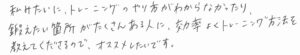 私みたいに、トレーニングのやり方がわからなかったり、
鍛えたい箇所がたくさんある人に、効率よくトレーニング方法を
教えてくださるので、オススメしたいです。